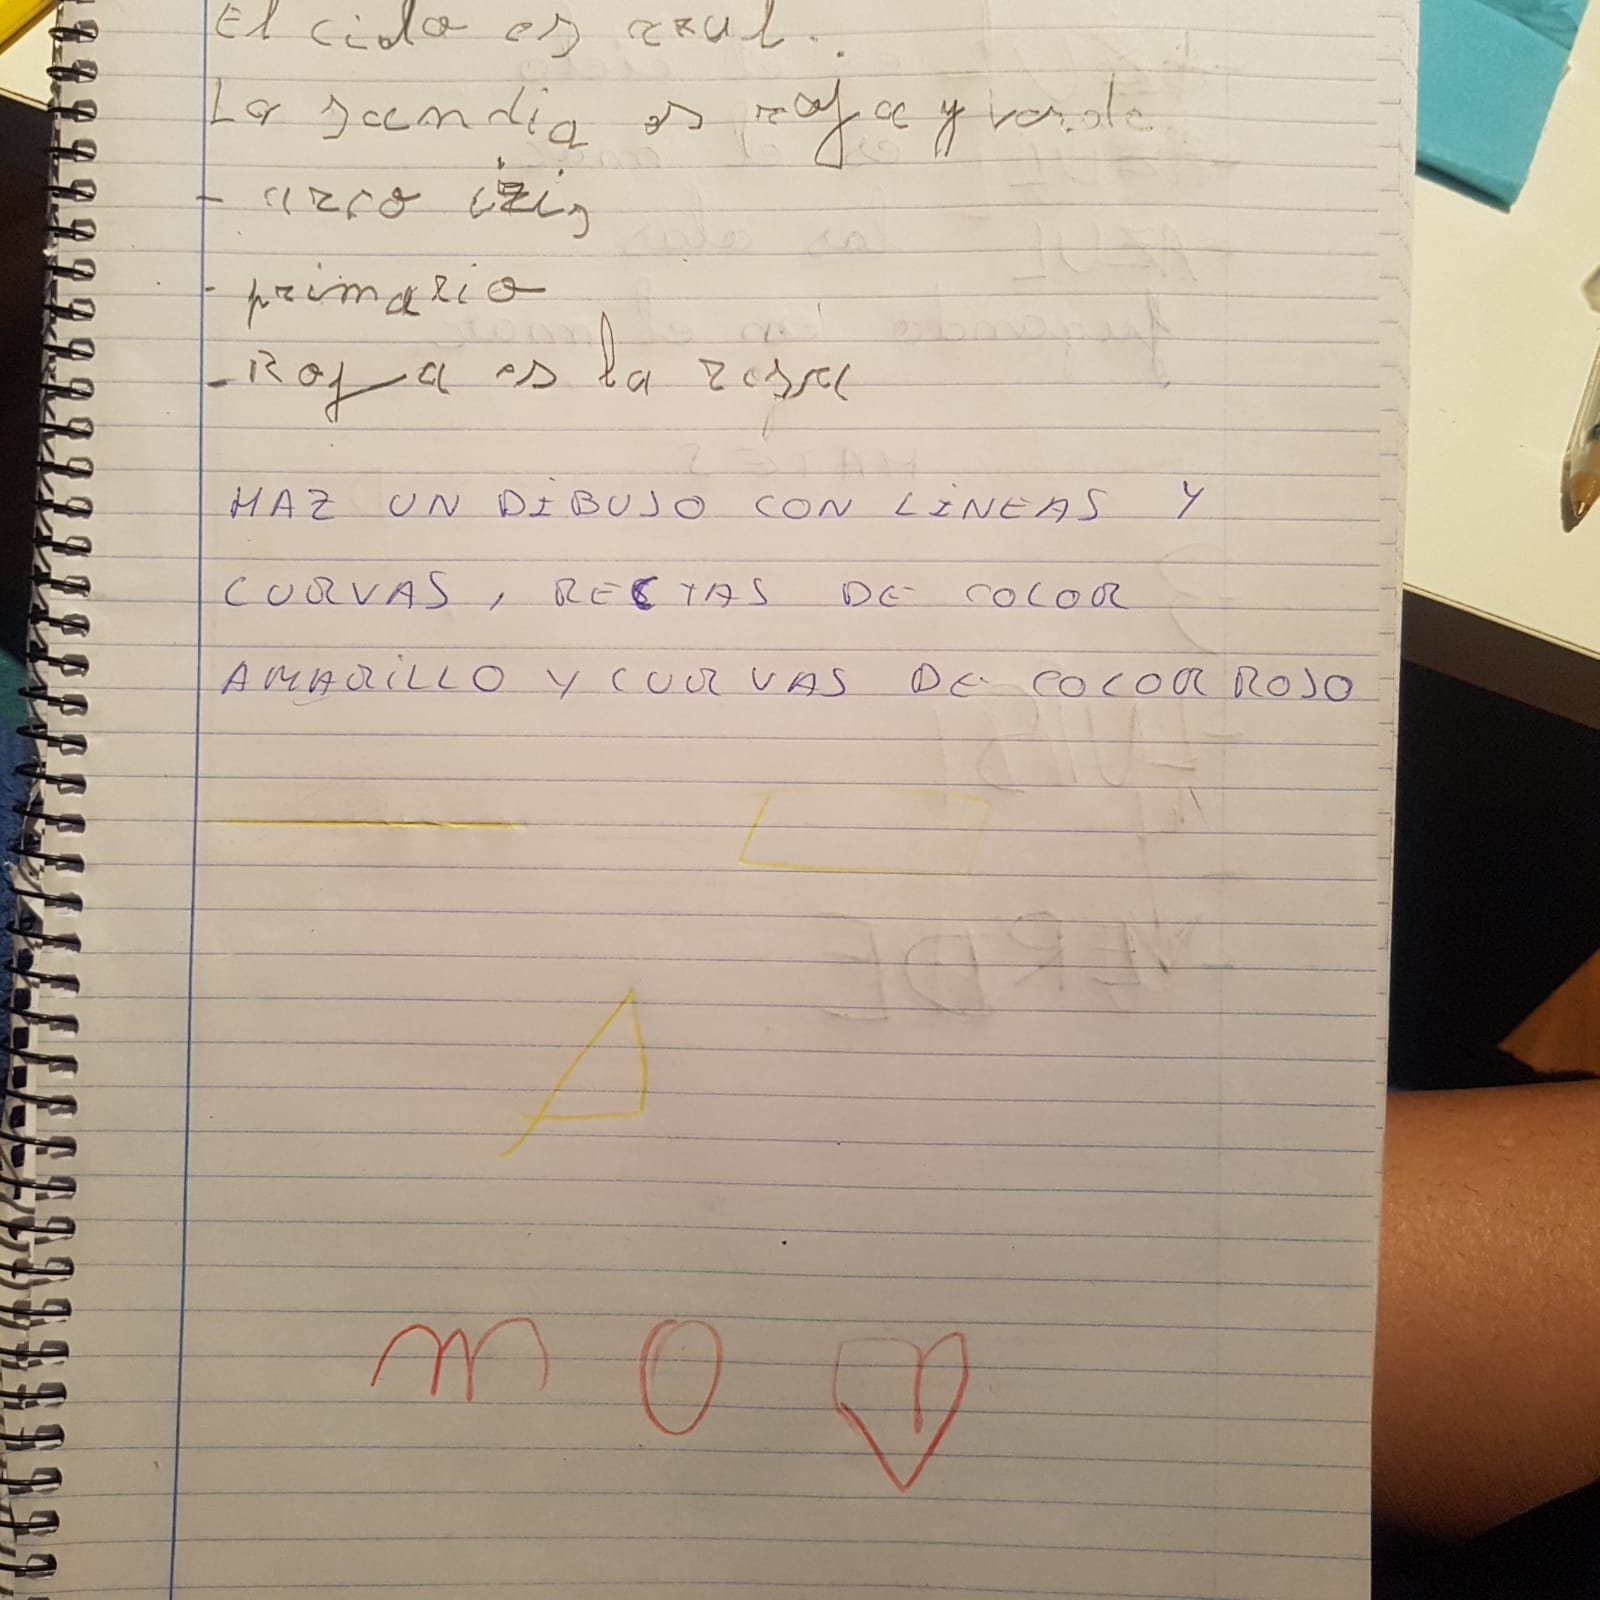 El cielo es azul.
La sandia es roja y verde
- arco iris
- primario
- Roja es la rosa
HAZ UN DIBUJO CON LINEAS Y
CURVAS, RECTAS DE COLOR
AMARILLO Y CURVAS DE COLOR ROJO
m O